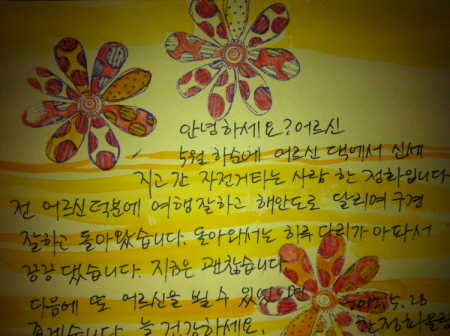 안녕하세요? 어르신
5월 하순에 어르신 댁에서 신세
지고 간 자전거타는 사람 한정화입니다
전 어르신덕분에 여행 잘하고 해안도로 달리며 구경
잘하고 돌아왔습니다. 돌아와서는 하루 다리가 아파서
끙끙 댔습니다. 지금은 괜찮습니다.
다음에 또 어르신을 뵐 수 있었으면
좋겠습니다. 늘 건강하세요.
5.28
한정화올림